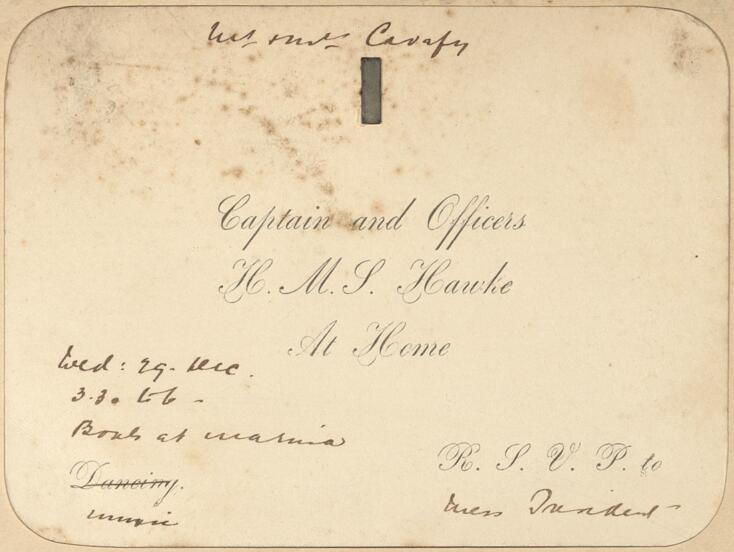 Mr & Mrs Cavafy
Captain and Officers
H. M. S. Hawke
At Home
Wed: 29. Dec.
3.30 to 6 -
Boats at marina
Dancing.
music
R. S. V. P. to
Mess President